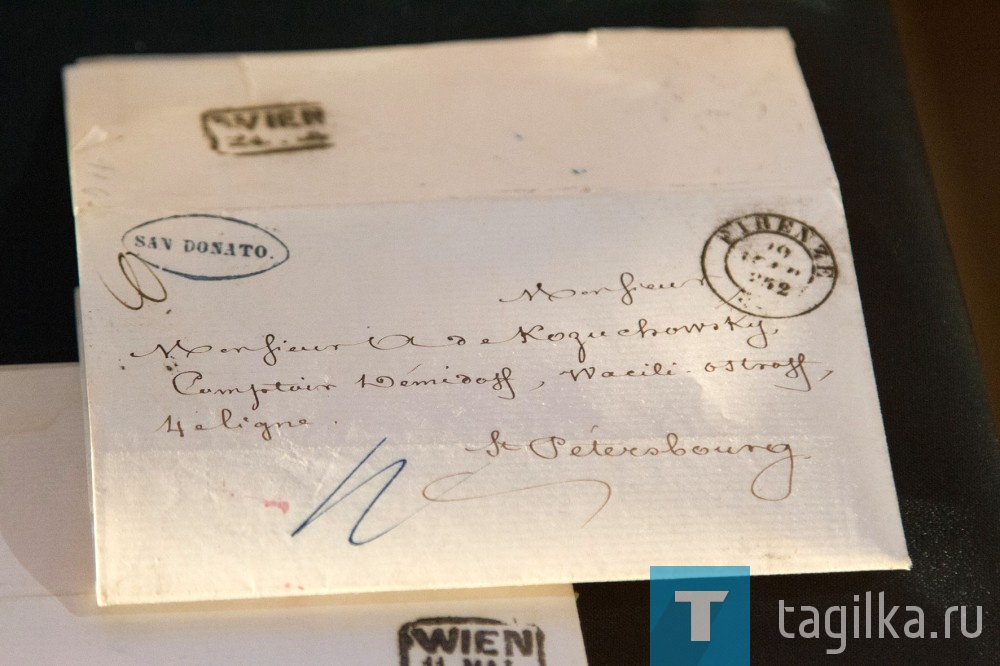 WIEN
SAN DONATO.
FIRENZE
10
Monsieur
Monsieur A de Kozuchowsky,
Comptoir Démidoff, Wacili-ostroff,
4e ligne.
St Pétersbourg
WIEN
11 MAI
T tagilka.ru